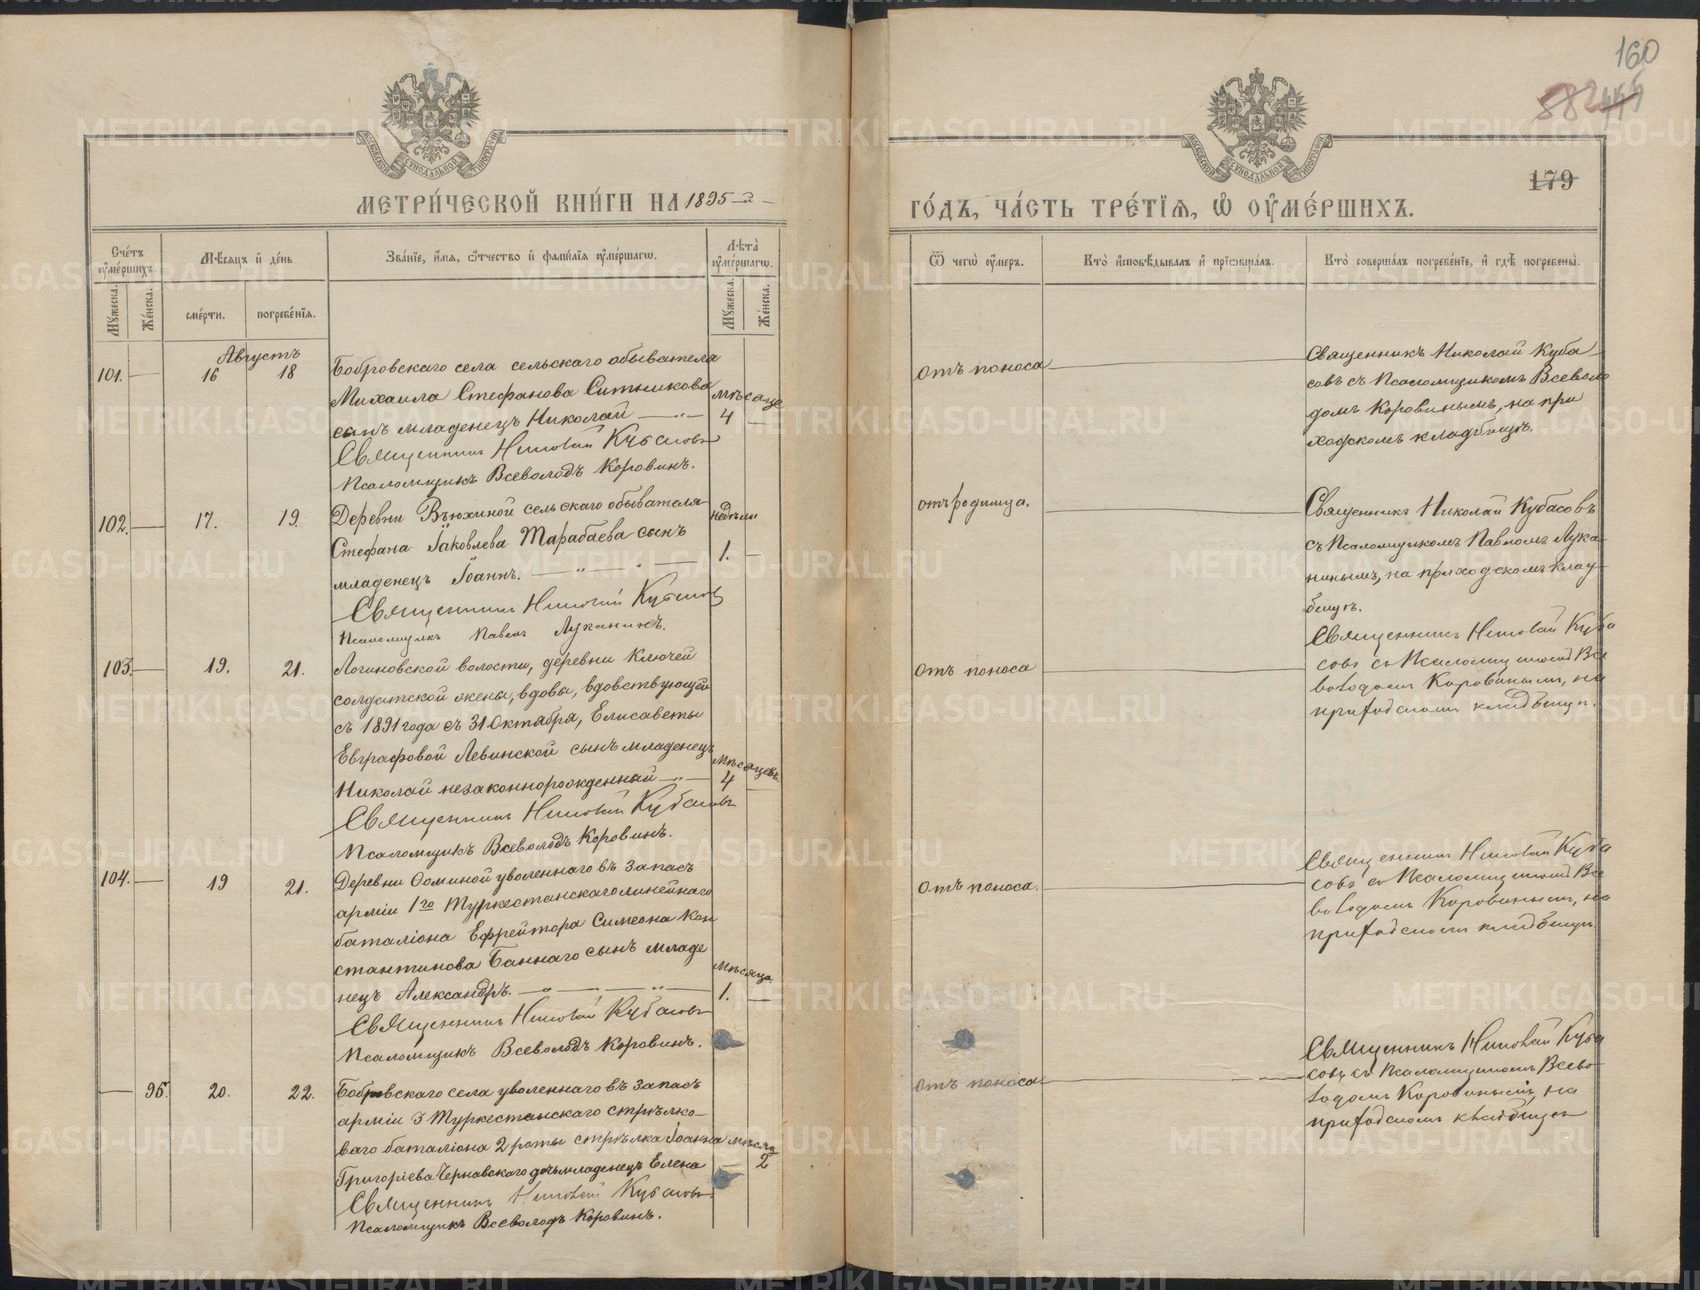 160
582
179
МОСКОВСКОЙ СѴНОДАЛЬНОЙ ТИПОГРАФІИ
МОСКОВСКОЙ СѴНОДАЛЬНОЙ ТИПОГРАФІИ
МЕТРИ́ЧЕСКОЙ КНИ́ГИ НА 1895
ГО́ДЪ, ЧА́СТЬ ТРЕ́ТІЯ, Ѡ ОУ҆МЕ́РШИХЪ.
Сче́тъ оу҆ме́ршихъ.
Мѣ́сяцъ и҆ де́нь
Зва́нїе, и҆́мя, ѻ҆́тчество и҆ фами́лїя оу҆ме́ршагѡ.
Лѣ́та оу҆ме́ршагѡ.
Мꙋ́жеска.
Же́нска.
сме́рти.
погребе́нїя.
Мꙋ́жеска.
Же́нска.
Ѿ чегѡ̀ оу҆́меръ.
Кто̀ и҆сповѣ́дывалъ и҆ прїѡбща́лъ.
Кто̀ соверша́лъ погребе́нїе, и҆ гдѣ̀ погребены̀.
Августъ
101. — 16 18
Бобровскаго села сельскаго обывателя
Михаила Стефанова Ситникова
сынъ младенецъ Николай
мѣсяце
4 —
Священникъ Николай Кубасовъ
Псаломщикъ Всеволодъ Коровинъ.
отъ поноса
Священникъ Николай Куба
совъ съ Псаломщикомъ Всеволо
домъ Коровинымъ, на при
ходскомъ кладбищѣ.
102. — 17. 19.
Деревни Вьюхиной сельскаго обывателя
Стефана Іаковлева Тарабаева сынъ
младенецъ Іоаннъ.
недѣли
1. —
Священникъ Николай Кубасовъ
Псаломщикъ Павелъ Луканинъ.
отъ родимца.
Священникъ Николай Кубасовъ
съ Псаломщикомъ Павломъ Лука-
нинымъ, на приходскомъ клад-
бищѣ.
103. — 19. 21.
Логиновской волости, деревни Ключей
солдатской жены, вдовы, вдовствующей
съ 1891 года съ 31 Октября, Елисаветы
Евграфовой Левинской сынъ младенецъ
Николай незаконнорожденный
мѣсяцевъ
4 —
Священникъ Николай Кубасовъ
Псаломщикъ Всеволодъ Коровинъ.
Отъ поноса
Священникъ Николай Куба
совъ съ Псаломщикомъ Все
володомъ Коровинымъ, на
приходскомъ кладбищѣ.
104. — 19 21.
Деревни Ѳоминой уволеннаго въ запасъ
арміи 1го Туркестанскаго линейнаго
баталіона Ефрейтора Симеона Кон
стантинова Баннаго сынъ младе
нецъ Александръ.
мѣсяца
1. —
Священникъ Николай Кубасовъ
Псаломщикъ Всеволодъ Коровинъ.
отъ поноса.
Священникъ Николай Куба
совъ съ Псаломщикомъ Все
володомъ Коровинымъ, на
приходскомъ кладбищѣ
— 96. 20. 22.
Бобровскаго села уволеннаго въ запасъ
арміи 3 Туркестанскаго стрѣлко-
ваго баталіона 2 роты стрѣлка Іоанна
Григоріева Чернавскаго дочь младенецъ Елена
мѣсяц
— 2
Священникъ Николай Кубасовъ
Псаломщикъ Всеволодъ Коровинъ.
отъ поноса
Священникъ Николай Куба
совъ съ Псаломщикомъ Всево
лодомъ Коровинымъ, на
приходскомъ кладбищѣ
METRIKI.GASO-URAL.RU